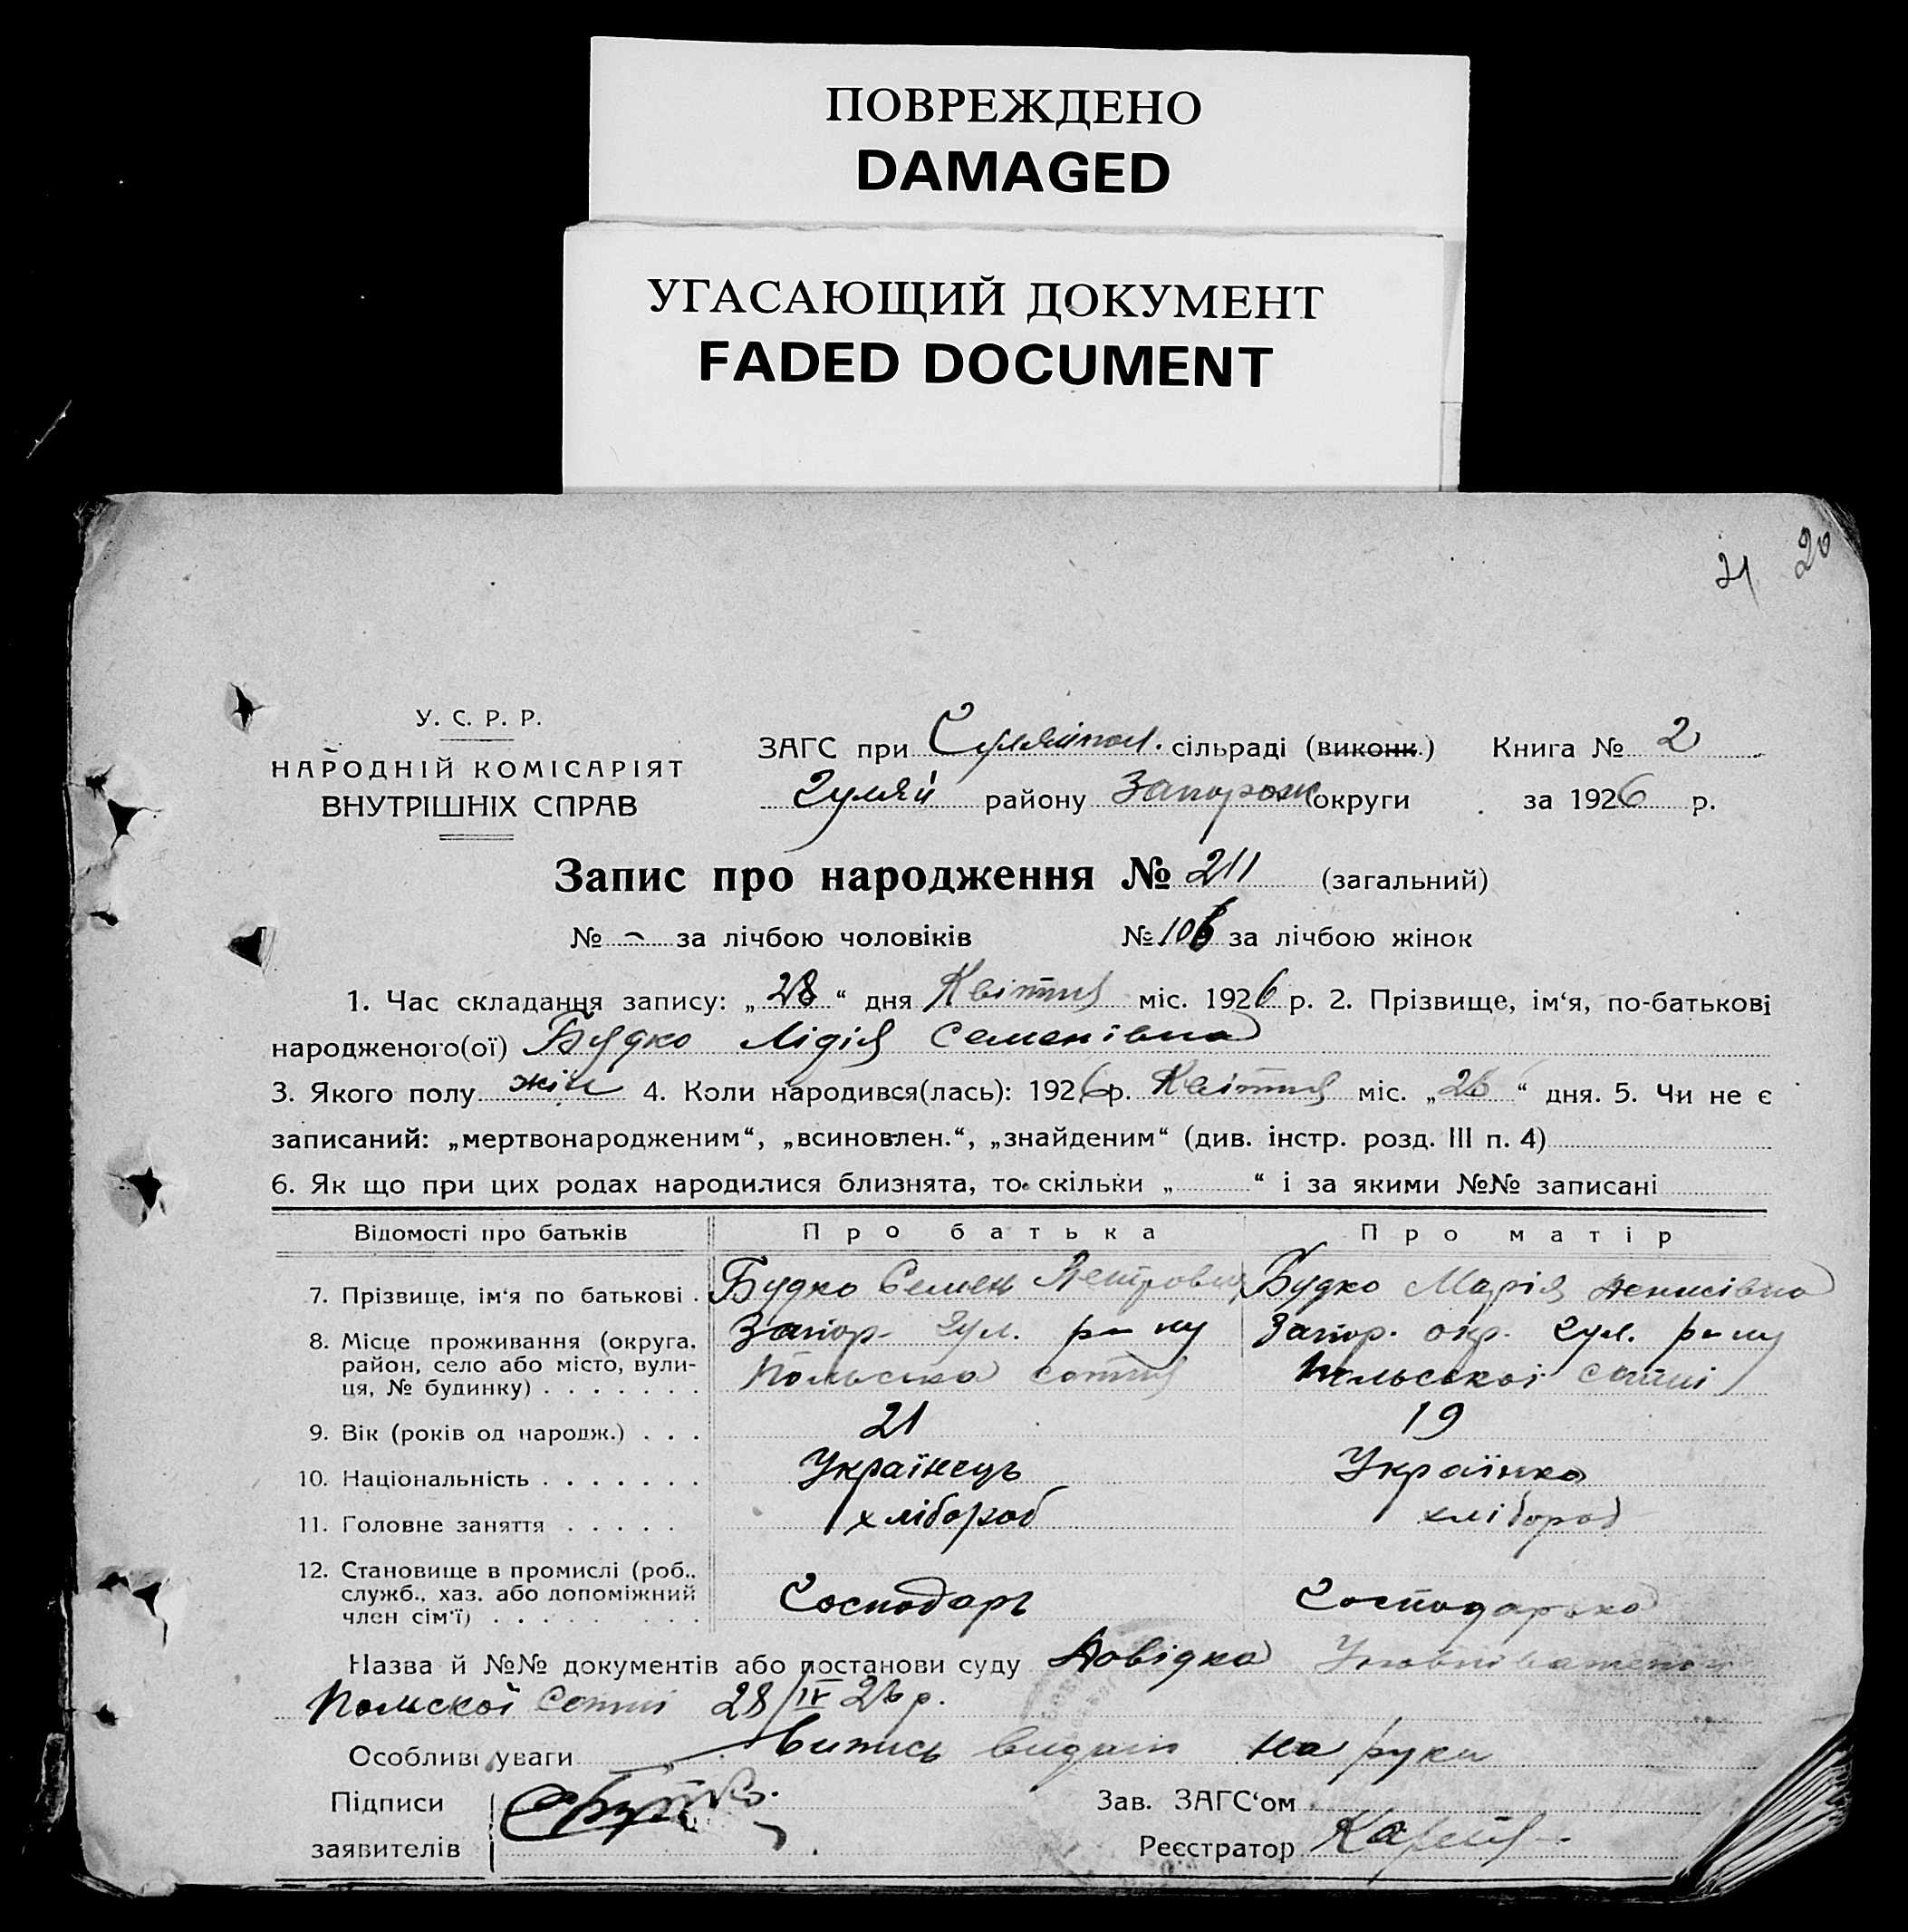 ПОВРЕЖДЕНО
DAMAGED
УГАСАЮЩИЙ ДОКУМЕНТ
FADED DOCUMENT
21 20
У. С. Р. Р.
НАРОДНІЙ КОМІСАРІЯТ
ВНУТРІШНІХ СПРАВ
ЗАГС при Гуляйпол. сільраді (виконк.) Книга № 2
Гуляй району Запорож округи за 1926 р.
Запис про народження № 211 (загальний)
№ – за лічбою чоловіків № 106 за лічбою жінок
1. Час складання запису: „28“ дня Квітня міс. 1926 р. 2. Прізвище, ім‘я, по-батькові
народженого(ої) Будко Лідія Семенівна
3. Якого полу жін 4. Коли народився(лась): 1926 р. Квітня міс. „26“ дня. 5. Чи не є
записаний: „мертвонародженим“, „всиновлен.“, „знайденим“ (див. інстр. розд. III п. 4)
6. Як що при цих родах народилися близнята, то скільки „ “ і за якими №№ записані
Відомості про батьків Про батька Про матір
7. Прізвище, ім‘я по батькові . Будко Семен Петрович Будко Марія Денисівна
8. Місце проживання (округа, Запор. Гул. р-ну Запор. окр. Гул. р-ну
район, село або місто, вули- Польська сотня Польскої сотні
ця, № будинку) . . . . . . .
9. Вік (років од народж.) . . . 21 19
10. Національність . . . . . . . Українець Українка
11. Головне заняття . . . . . хлібороб хлібороб
12. Становище в промислі (роб.,
служб., хаз. або допоміжний Господарь Господарка
член сім‘ї) . . . . . . . . .
Назва й №№ документів або постанови суду Довідка Уповноваженого
Польскої Сотні 28/IV 26 р.
Особливі уваги Випись видано на руки
Підписи Зав. ЗАГС‘ом
заявителів Реєстратор